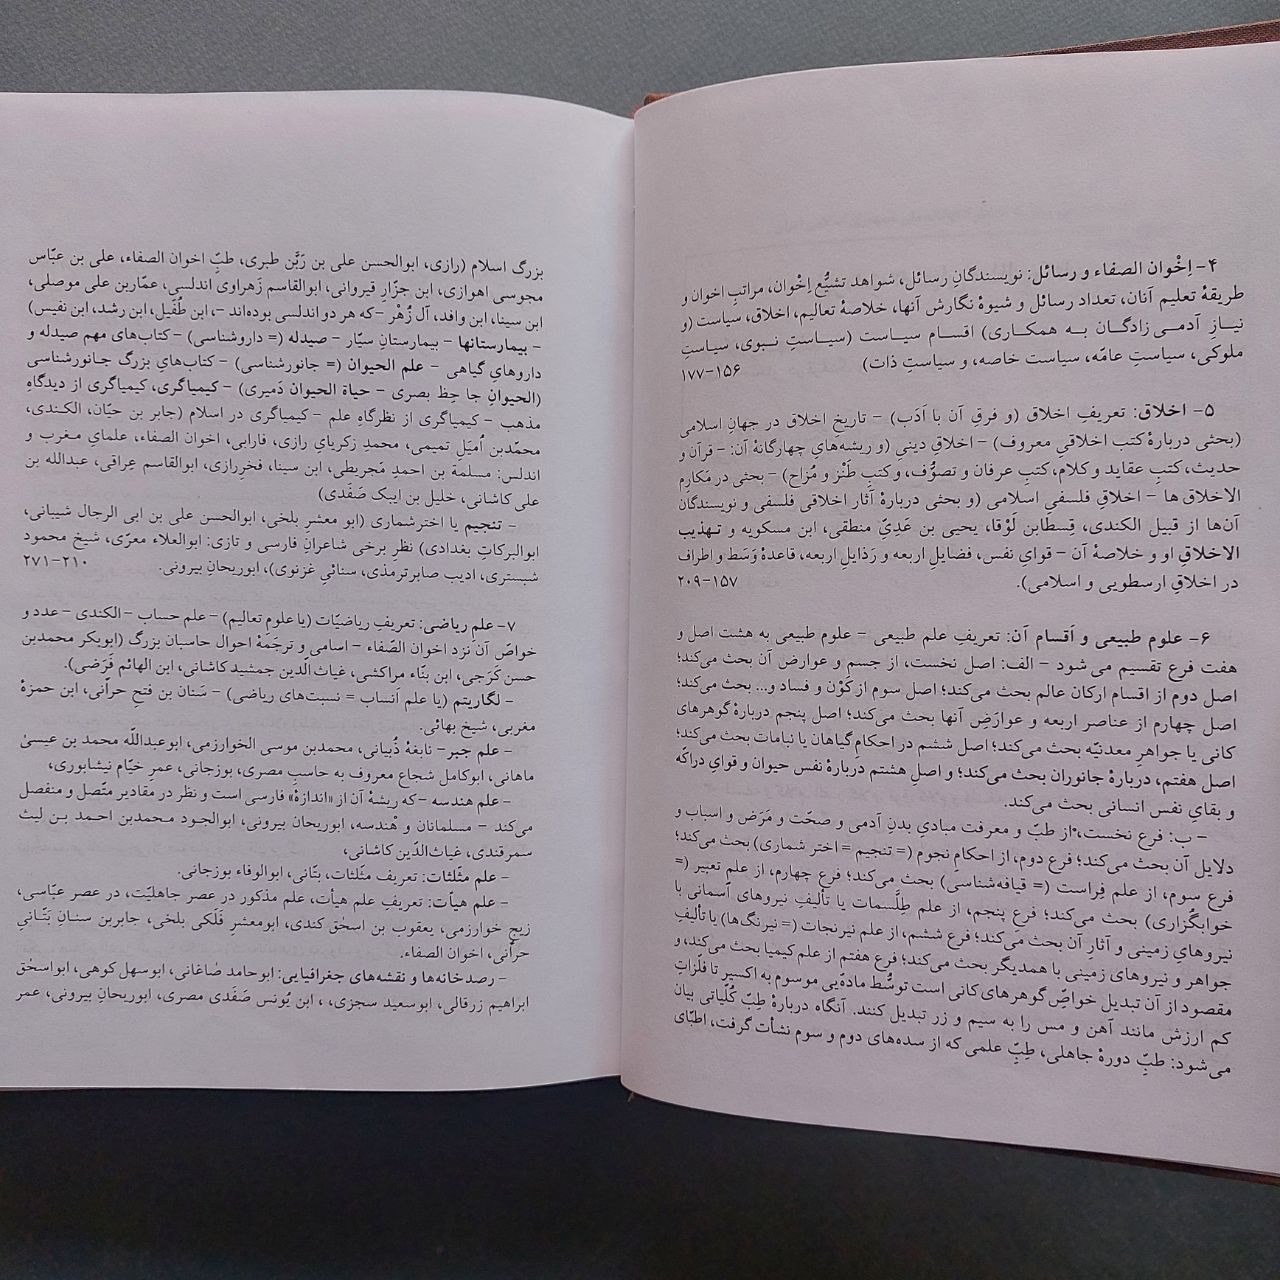 ۴- اِخْوان الصفاء و رسائل: نویسندگانِ رسائل، شواهد تشیُّع اِخْوان، مراتبِ اخوان و
طریقهٔ تعلیم آنان، تعداد رسائل و شیوهٔ نگارش آنها، خلاصهٔ تعالیم، اخلاق، سیاست (و
نیازِ آدمی زادگان به همکاری) اقسام سیاست (سیاستِ نبوی، سیاستِ
ملوکی، سیاستِ عامّه، سیاست خاصه، و سیاستِ ذات) ۱۵۶-۱۷۷
۵- اخلاق: تعریفِ اخلاق (و فرقِ آن با اَدَب) – تاریخِ اخلاق در جهانِ اسلامی
(بحثی دربارهٔ کتب اخلاقیِ معروف) – اخلاقِ دینی (و ریشه‌های چهارگانهٔ آن: – قرآن و
حدیث، کتبِ عقاید و کلام، کتبِ عرفان و تصوُّف، و کتبِ طَنْز و مُزاح) – بحثی در مَکارم
الاخلاق ها – اخلاقِ فلسفیِ اسلامی (و بحثی دربارهٔ آثار اخلاقی فلسفی و نویسندگان
آن‌ها از قبیل الکندی، قِسطابن لَوْقا، یحیی بن عَدِیّ منطقی، ابن مسکویه و تهذیب
الاخلاقِ او و خلاصهٔ آن – قوایِ نفس، فضایلِ اربعه و رَذایل اربعه، قاعدهٔ وَسَط و اطراف
در اخلاقِ ارسطویی و اسلامی). ۱۵۷-۲۰۹
۶- علوم طبیعی و اَقسام آن: تعریفِ علم طبیعی – علوم طبیعی به هشت اصل و
هفت فرع تقسیم می شود – الف: اصل نخست، از جسم و عوارض آن بحث می‌کند؛
اصل دوم از اقسام ارکان عالم بحث می‌کند؛ اصل سوم از کَوْن و فساد و... بحث می‌کند؛
اصل چهارم از عناصر اربعه و عوارَضِ آنها بحث می‌کند؛ اصل پنجم دربارهٔ گوهرهای
کانی یا جواهرِ معدنیّه بحث می‌کند؛ اصل ششم در احکامِ گیاهان یا نباتات بحث می‌کند؛
اصل هفتم، دربارهٔ جانوران بحث می‌کند؛ و اصلِ هشتم دربارهٔ نفس حیوان و قوایِ درّاکه
و بقایِ نفس انسانی بحث می‌کند.
– ب: فرع نخست، از طبّ و معرفت مبادیِ بدنِ آدمی و صحّت و مَرَض و اسباب و
دلایل آن بحث می‌کند؛ فرع دوم، از احکامِ نجوم (= تنجیم = اختر شماری) بحث می‌کند؛
فرع سوم، از علم فِراست (= قیافه‌شناسی) بحث می‌کند؛ فرع چهارم، از علم تعبیر (=
خوابگُزاری) بحث می‌کند؛ فرعِ پنجم، از علم طِلَّسمات یا تألیفِ نیروهای آسمانی با
نیروهایِ زمینی و آثارِ آن بحث می‌کند؛ فرع ششم، از علم نیرنجات (= نیرنگ‌ها) یا تألیفِ
جواهر و نیروهای زمینی با همدیگر بحث می‌کند؛ و فرع هفتم از علم کیمیا بحث می‌کند، و
مقصود از آن تبدیل خواصِّ گوهرهای کانی است توسُّط ماده‌یی موسوم به اکسیر تا فلّزاتِ
کم ارزش مانند آهن و مس را به سیم و زر تبدیل کنند. آنگاه دربارهٔ طِبّ کُلّیاتی بیان
می شود: طبِّ دورهٔ جاهلی، طِبِّ علمی که از سده‌های دوم و سوم نشأت گرفت، اطبّای
بزرگ اسلام (رازی، ابوالحسن علی بن رَبَّن طبری، طبِّ اخوان الصفاء، علی بن عبّاس
مجوسی اهوازی، ابن جزّارِ قیروانی، ابوالقاسم زَهراوی اندلسی، عمّاربن علی موصلی،
ابن سینا، ابن وافد، آل زُهْر –که هر دو اندلسی بوده‌اند –، ابن طُفَیل، ابن رشد، ابن نفیس)
– بیمارستانها – بیمارستانِ سیّار – صیدله (= داروشناسی) – کتاب‌های مهم صیدله و
داروهایِ گیاهی – علم الحیوان (= جانورشناسی) – کتاب‌هایِ بزرگ جانورشناسی
(الحیوانِ جا حِظ بصری – حیاة الحیوان دَمیری) – کیمیاگری، کیمیاگری از دیدگاهِ
مذهب – کیمیاگری از نظرگاهِ علم – کیمیاگری در اسلام (جابر بن حیّان، الکندی،
محمّدبن اُمَیَل تمیمی، محمدِ زکریایِ رازی، فارابی، اخوان الصفاء، علمایِ مغرب و
اندلس: مسلمة بن احمدِ مَجریطی، ابن سینا، فخرِرازی، ابوالقاسم عِراقی، عبدالله بن
علی کاشانی، خلیل بن اِیبک صَفَدی)
– تنجیم یا اخترشماری (ابو معشرِ بلخی، ابوالحسن علی بن ابی الرجال شیبانی،
ابوالبرکاتِ بغدادی) نظرِ برخی شاعرانِ فارسی و تازی: ابوالعلاء معرّی، شیخ محمود
شبستری، ادیب صابرترمذی، سنائیِ غزنوی)، ابوریحانِ بیرونی. ۲۱۰-۲۷۱
۷- علمِ ریاضی: تعریفِ ریاضیّات (یا علومِ تعالیم) – علم حساب – الکندی – عدد و
خواصّ آن نزد اخوان الصّفاء – اسامی و ترجَمَهٔ احوال حاسبان بزرگ (ابوبکر محمدبن
حسن کَرَجی، ابن بنّاء مراکشی، غیاث الّدین جمشید کاشانی، ابن الهائم فَرَضی).
– لگاریتم (یا علم اَنساب = نسبت‌های ریاضی) – سَنان بن فتحِ حرّانی، ابن حمزهٔ
مغربی، شیخ بهائی.
– علم جبر– نابغهٔ ذُبیانی، محمدبن موسی الخوارزمی، ابوعبداللّه محمد بن عیسیٰ
ماهانی، ابوکامل شجاع معروف به حاسبِ مصری، بوزجانی، عمرِ خیّام نیشابوری،
– علم هندسه –که ریشهٔ آن از «اندازهٔ» فارسی است و نظر در مقادیر متّصل و منفصل
می‌کند – مسلمانان و هْندسه، ابوریحان بیرونی، ابوالجود محمدبن احمد بن لیث
سمرقندی، غیاث‌الدّین کاشانی،
– علم مثلثات: تعریف مثلثات، بتّانی، ابوالوفاء بوزجانی.
– علم هیأت: تعریفِ علم هیأت، علم مذکور در عصر جاهلیّت، در عصر عبّاسی،
زیجِ خوارزمی، یعقوب بن اسحٰق کندی، ابومعشرِ فَلَکی بلخی، جابربن سنانِ بَتّانیِ
حرّانی، اخوان الصفاء.
– رصدخانه‌ها و نقشه‌های جغرافیایی: ابوحامد صٰاغانی، ابوسهل کوهی، ابواسحٰق
ابراهیم زرقالی، ابوسعید سجزی، ، ابن یُونس صَفَدی مصری، ابوریحانِ بیرونی، عمر